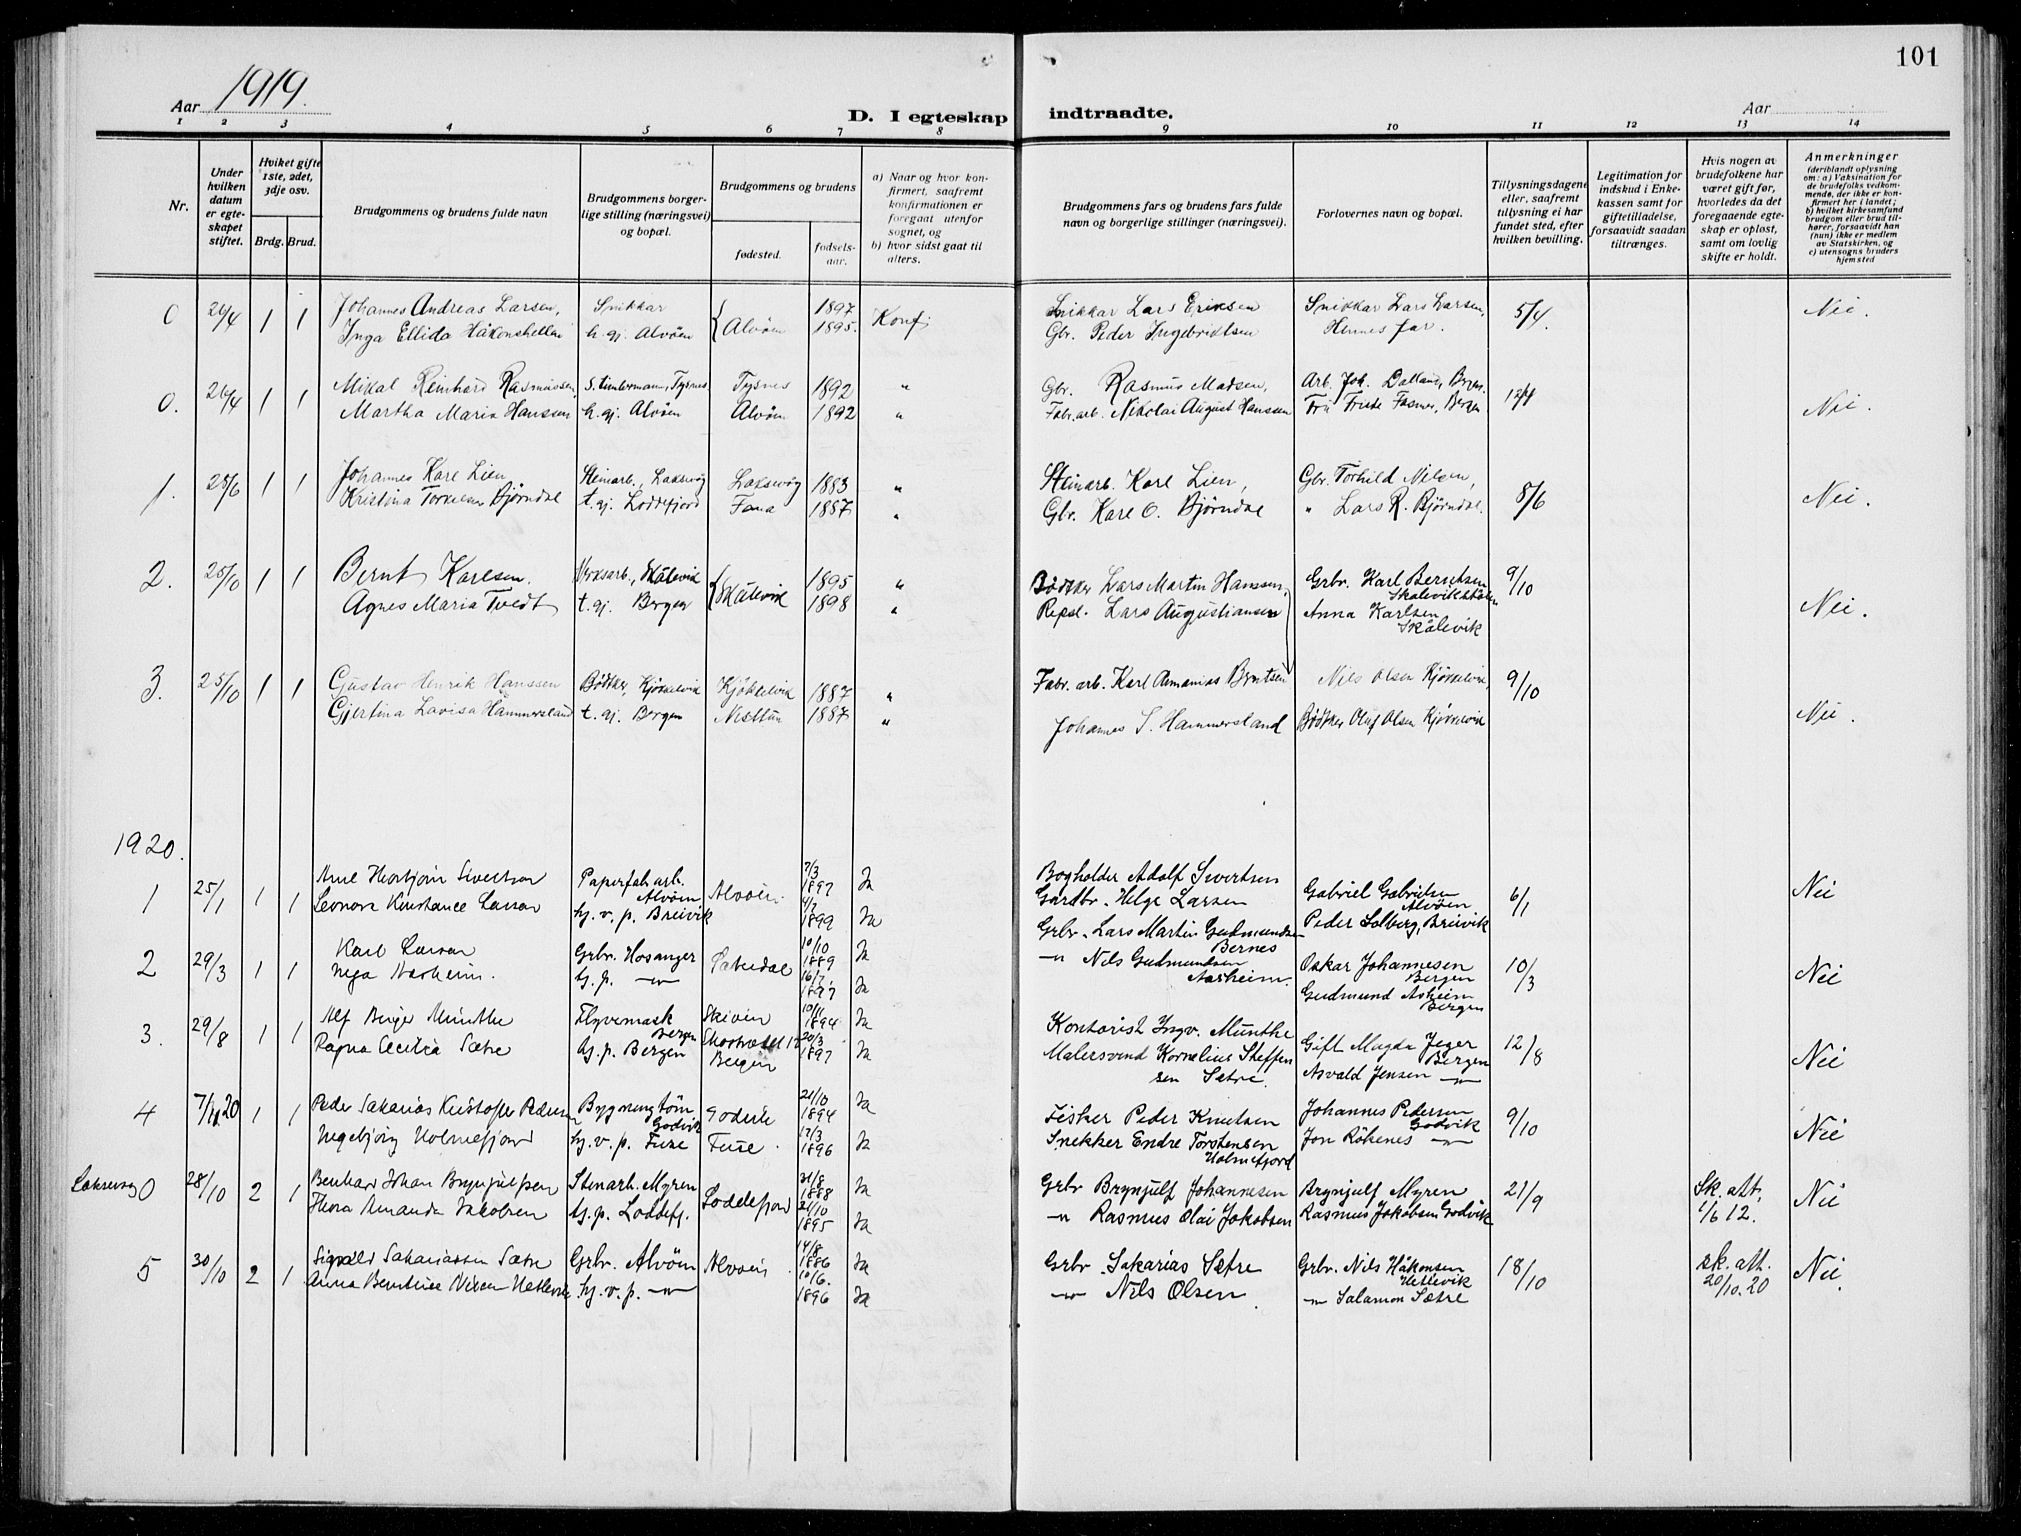 101
Aar 1919.
D. I egteskap indtraadte.
Aar
1 2 3 4 5 6 7 8 9 10 11 12 13 14
Nr.
Under hvilken datum er egteskapet stiftet.
Hvilket gifte 1ste, 2det, 3dje osv.
Brdg. Brud.
Brudgommens og brudens fulde navn
Brudgommens borgerlige stilling (næringsvei) og bopæl.
Brudgommens og brudens
fødested.
fødselsaar.
a) Naar og hvor konfirmert, saafremt konfirmationen er foregaat utenfor sognet, og
b) hvor sidst gaat til alters.
Brudgommens fars og brudens fars fulde navn og borgerlige stillinger (næringsvei).
Forlovernes navn og bopæl.
Tillysningsdagene eller, saafremt tillysning ei har fundet sted, efter hvilken bevilling.
Legitimation for indskud i Enkekassen samt for giftetilladelse, forsaavidt saadan tiltrænges.
Hvis nogen av brudefolkene har været gift før, hvorledes da det foregaaende egteskap er opløst, samt om lovlig skifte er holdt.
Anmerkninger (deriblandt oplysning om: a) Vaksination for de brudefolks vedkommende, der ikke er konfirmert her i landet; b) hvilket kirkesamfund brudgom eller brud tilhører, forsaavidt han (hun) ikke er medlem av Statskirken, og c) utensogns bruders hjemsted
0 26/4 1 1 Johannes Andreas Larsen, Snikkar 1897 Konf. Snikkar Lars Eriksen Snikkar Lars Larsen, 5/4. Nei.
Inga Ellida Håkonshellen h. gj. Alvöen Alvöen 1895. Gbr. Peder Ingebrigtsen Hennes far.
0. 26/4 1 1 Mikal Reinhard Rasmussen S. timbermann, Tysnes Tysnes 1892 " Gbr. Rasmus Madsen, Arb. Joh. Dalland, Bergen 12/4 Nei.
Martha Maria Hanssen h. gj. Alvöen Alvöen 1892 " Fabr. arb. Nikolai August Hanssen Fru Fasmer, Bergen
1. 1 1 Johannes Karl Lien Steinarb., Laksevåg Laksevåg 1883 " Steinarb. Karl Lien, Gbr. Torkild Nilsen, 8/6 Nei.
Kristina Bjørndal t. gj. Loddefjord Fana 1887 " Gbr. Karl O. Bjørndal " Lars R. Bjørndal.
2. 25/10 1 1 Bernt Karlsen. Verksarb., Skålevik Skålevik 1895 " Bödtker Lars Martin Hanssen, Grbr. Karl Berntsen 9/10 Nei.
Agnes Maria Tvedt t. gj. Bergen 1898 " Repsl. Lars Augustiansen Anna Karlsen Skålevik
3. 25/10 1 1 Gustav Henrik Hanssen Bödtker, Kjökelvik Kjökelvik 1887 " Fabr. arb. Karl Ananias Berntsen Nils Olsen Kjökelvik, 9/10 Nei.
Gjertina Lovisa Hammersland t. gj. Bergen Nesttun 1887 " Johannes S. Hammersland Bödtker Oluf Olsen Kjökelvik
1920.
1 25/1 1 1 Sivertsen Paperfab arb. Alvöen Alvöen 7/3 1897 Ja Bogholder Adolf Sivertsen Gabriel Gabrielsen Alvöen 6/1 Nei
Leonora Konstance Larsen hj. v. p. Breivik 1899 Ja Gardbr. Helge Larsen Peder Solberg, Breivik
2 29/3 1 1 Karl Larsen Grbr. Hosanger 10/10 1889 Ja Grbr. Lars Martin Gudmundsen Bernes Oskar Johannesen Bergen 10/3 Nei
Inga Aarheim. hj. p. — " — 16/7 1897 Ja — " Nils Gudmundsen Aarheim. Gudmund Bergen
3. 29/8 1 1 Alf Birger Munthe Bergen Skivin 10/11 1894 Ja Kontorist Ingv. Munthe Gift Magda Jeger Bergen 12/8 Nei
Ragna Cecilia Sætre hj. p. Bergen Bergen 20/3 1897 Ja Malersvend Kornelius Steffensen Sætre. Asvald Jensen — " —
4 7/11.20 1 1 Peder Sakarias Kristoffer Pedersen Bygningstöm. Godvik Godvik 21/10 1894 Ja Fisker Peder Knutsen Johannes Pedersen Godvik 9/10 Nei
Ingebjörg Holmefjord hj. v. p. Fuse Fuse. 17/3 1896 Ja Snekker Endre Torstensen Holmefjord Jon Röhenes — " —
Laksevåg 0 28/10 2 1 Bernhard Johan Brynjulfsen Stenarb. Myren Loddefjord 31/8 1888 Ja Grbr Brynjulf Johannesen Brynjulf Myren 21/9 Sk. att. 1/6 12. Nei
Thora Amanda Jakobsen hj. p. Loddefj. 1895 Ja — " Rasmus Olai Jakobsen Rasmus Jakobsen Godvik
5 30/10 2 1 Sigvald Sakariassen Sætre Grbr. Alvöen Alvöen 14/8 1886 Ja Grbr. Sakarias Sætre Grbr. Nils Håkonsen Hetlevik 18/10 sk. att. 20/10.20 Nei.
Anna Berntine Nilsen Hetlevik hj. v. p. — " — 10/6. 1896 Ja — " — Nils Olsen — " Salamon Sætre